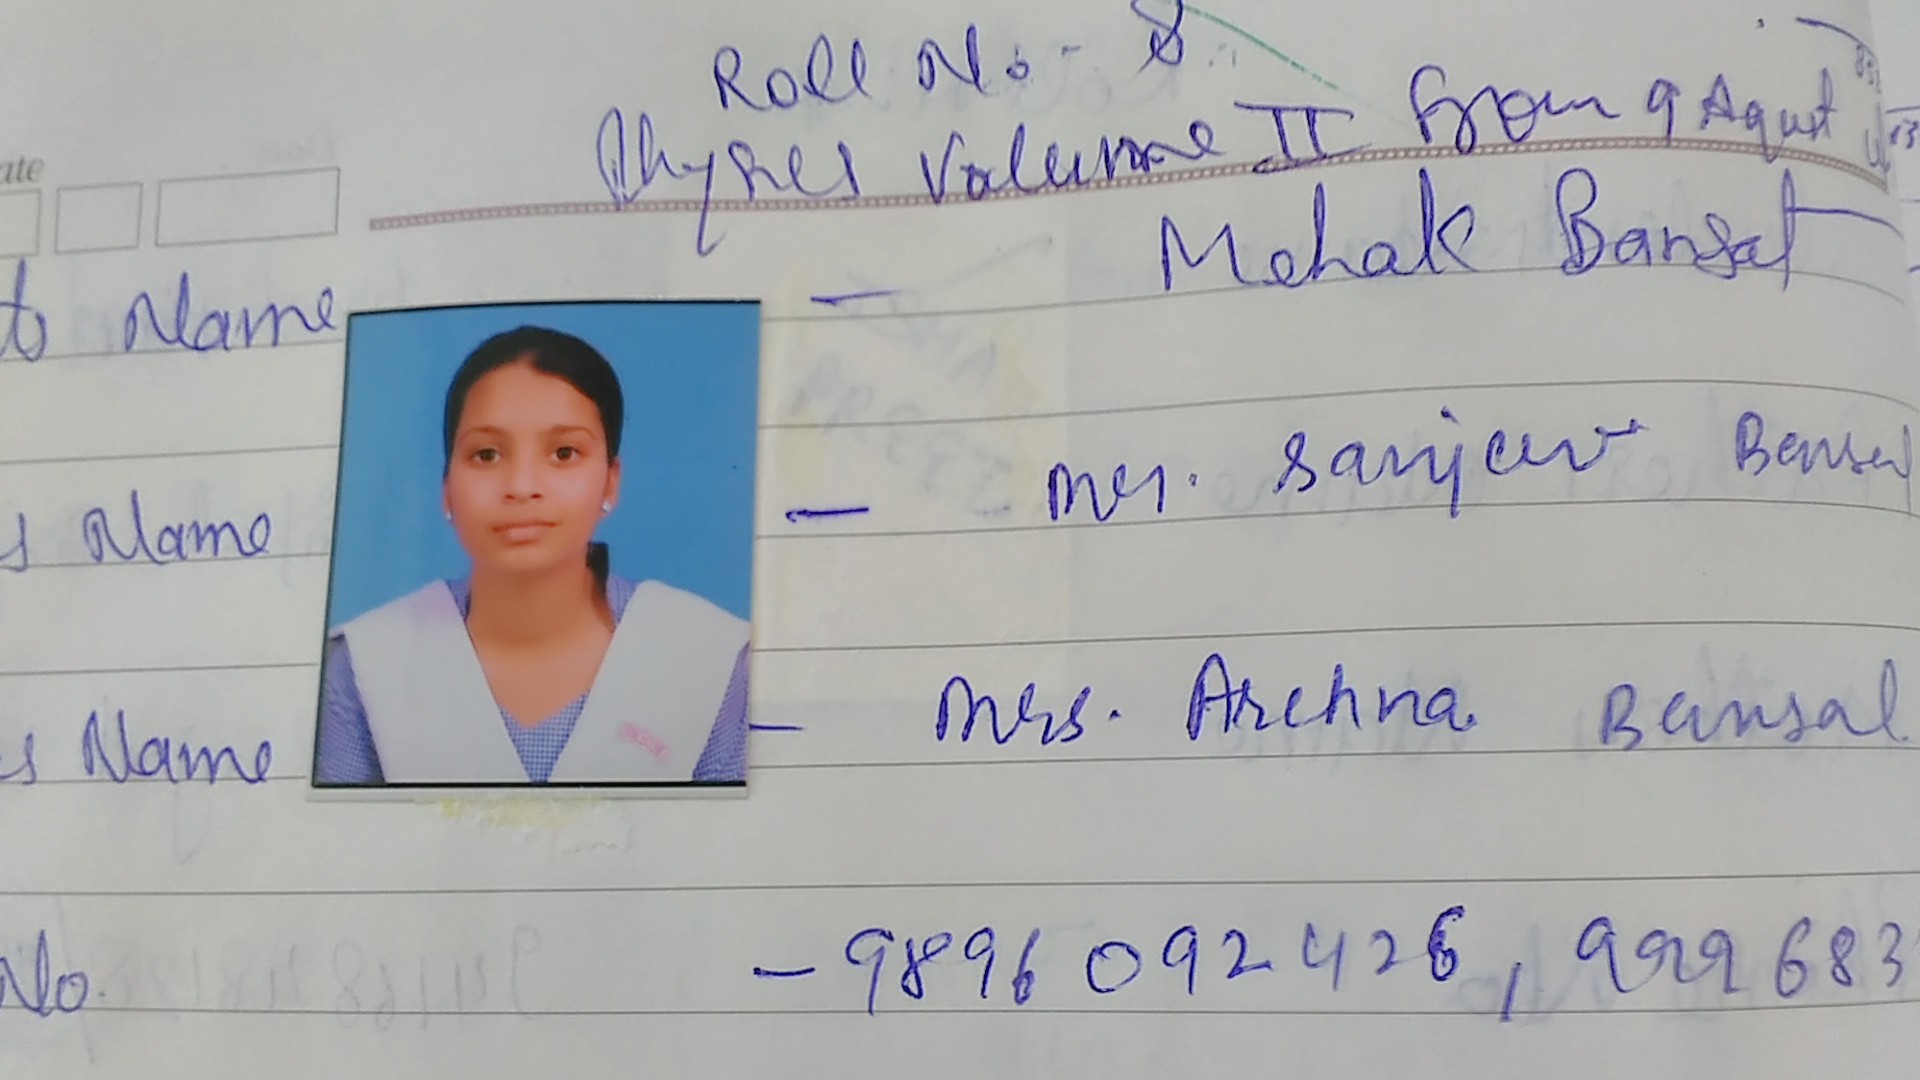 Roll No - 8
Physics Volume II from 9 Agust
ate
Name - Mehak Bansal
s Name - Mr. Sanjeev Bansal
s Name - Mrs. Archna Bansal
No. - 9896092426, 9996683